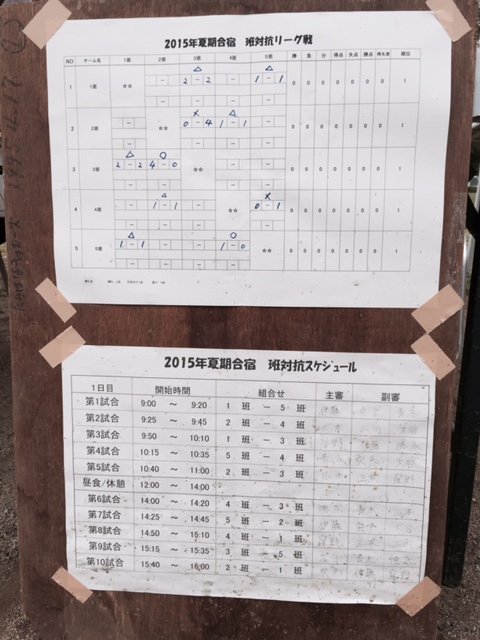 2015年夏期合宿 班対抗リーグ戦
NO チーム名 1班 2班 3班 4班 5班 勝 負 分 得点 失点 勝点 得失差 順位
△ △
1 1班 ☆☆ - 2 - 2 - 1 - 1 0 0 0 0 0 0 0 1
× △
2 2班 - ☆☆ 0 - 4 1 - 1 - 0 0 0 0 0 0 0 1
△ ○
3 3班 2 - 2 4 - 0 ☆☆ - - 0 0 0 0 0 0 0 1
△ ×
4 4班 - 1 - 1 - ☆☆ 0 - 1 0 0 0 0 0 0 0 1
△ ○
5 5班 1 - 1 - - 1 - 0 ☆☆ 0 0 0 0 0 0 0 1
2015年夏期合宿 班対抗スケジュール
1日目 開始時間 組合せ 主審 副審
第1試合 9:00 ～ 9:20 1 班 － 5 班
第2試合 9:25 ～ 9:45 2 班 － 4 班
第3試合 9:50 ～ 10:10 1 班 － 3 班
第4試合 10:15 ～ 10:35 5 班 － 4 班
第5試合 10:40 ～ 11:00 2 班 － 3 班
昼食/休憩 12:00 ～ 14:00
第6試合 14:00 ～ 14:20 4 班 － 3 班
第7試合 14:25 ～ 14:45 5 班 － 2 班
第8試合 14:50 ～ 15:10 4 班 － 1 班
第9試合 15:15 ～ 15:35 3 班 － 5 班
第10試合 15:40 ～ 16:00 2 班 － 1 班